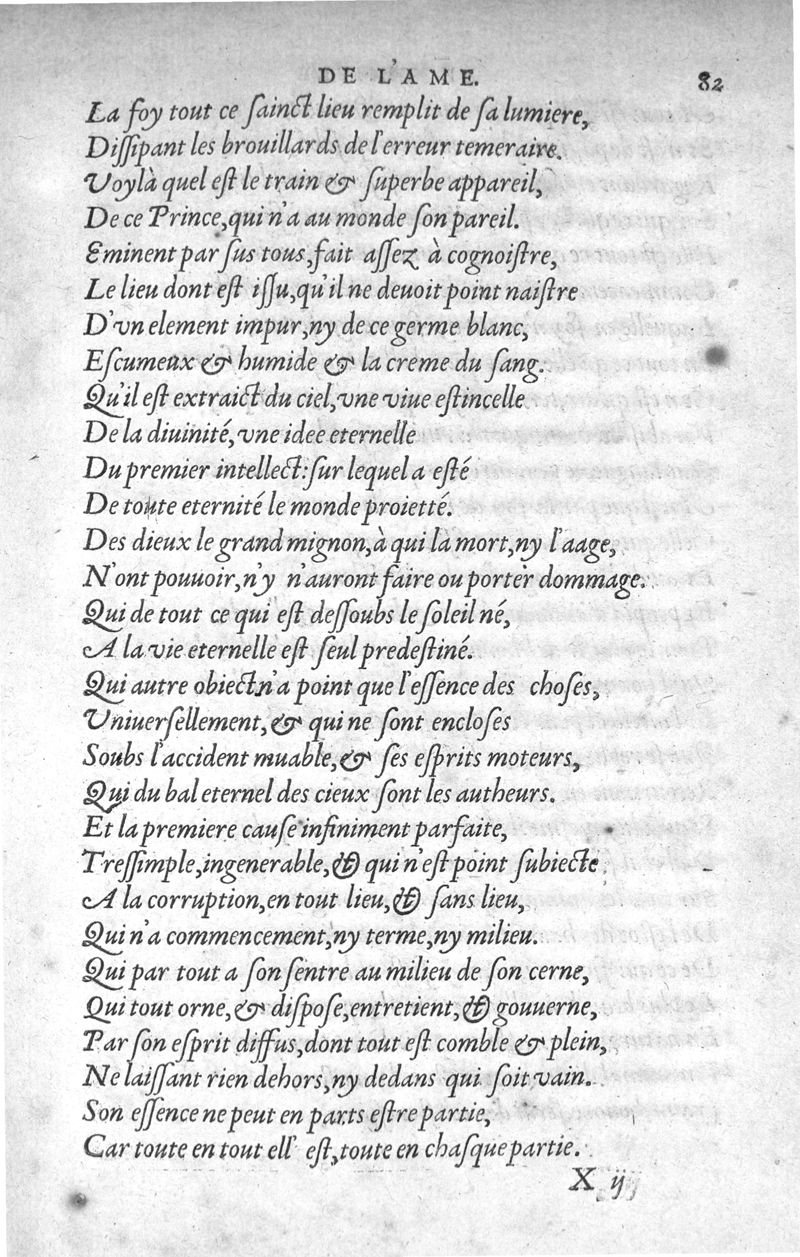 DE L'AME. 82
La foy tout ce ſainct lieu remplit de ſa lumiere,
Diſſipant les brouillards de l'erreur temeraire.
Voylà quel eſt le train & ſuperbe appareil,
De ce Prince, qui n'a au monde ſon pareil.
Eminent par ſus tous, fait aſſez à cognoiſtre,
Le lieu dont eſt iſſu, qu'il ne deuoit point naiſtre
D'vn element impur, ny de ce germe blanc,
Eſcumeux & humide & la creme du ſang.
Qu'il eſt extraict du ciel, vne viue eſtincelle
De la diuinité, vne idee eternelle
Du premier intellect: ſur lequel a eſté
De toute eternité le monde proietté.
Des dieux le grand mignon, à qui la mort, ny l'aage,
N'ont pouuoir, n'y n'auront faire ou porter dommage.
Qui de tout ce qui eſt deſſoubs le ſoleil né,
A la vie eternelle eſt ſeul predeſtiné.
Qui autre obiect n'a point que l'eſſence des choſes,
Vniuerſellement, & qui ne ſont encloſes
Soubs l'accident muable, & ſes eſprits moteurs,
Qui du bal eternel des cieux ſont les autheurs.
Et la premiere cauſe infiniment parfaite,
Treſſimple, ingenerable, & qui n'eſt point ſubiecte
A la corruption, en tout lieu, & ſans lieu,
Qui n'a commencement, ny terme, ny milieu.
Qui par tout a ſon ſentre au milieu de ſon cerne,
Qui tout orne, & diſpoſe, entretient, & gouuerne,
Par ſon eſprit diffus, dont tout eſt comble & plein,
Ne laiſſant rien dehors, ny dedans qui ſoit vain.
Son eſſence ne peut en parts eſtre partie,
Car toute en tout ell' eſt, toute en chaſque partie.
X ij